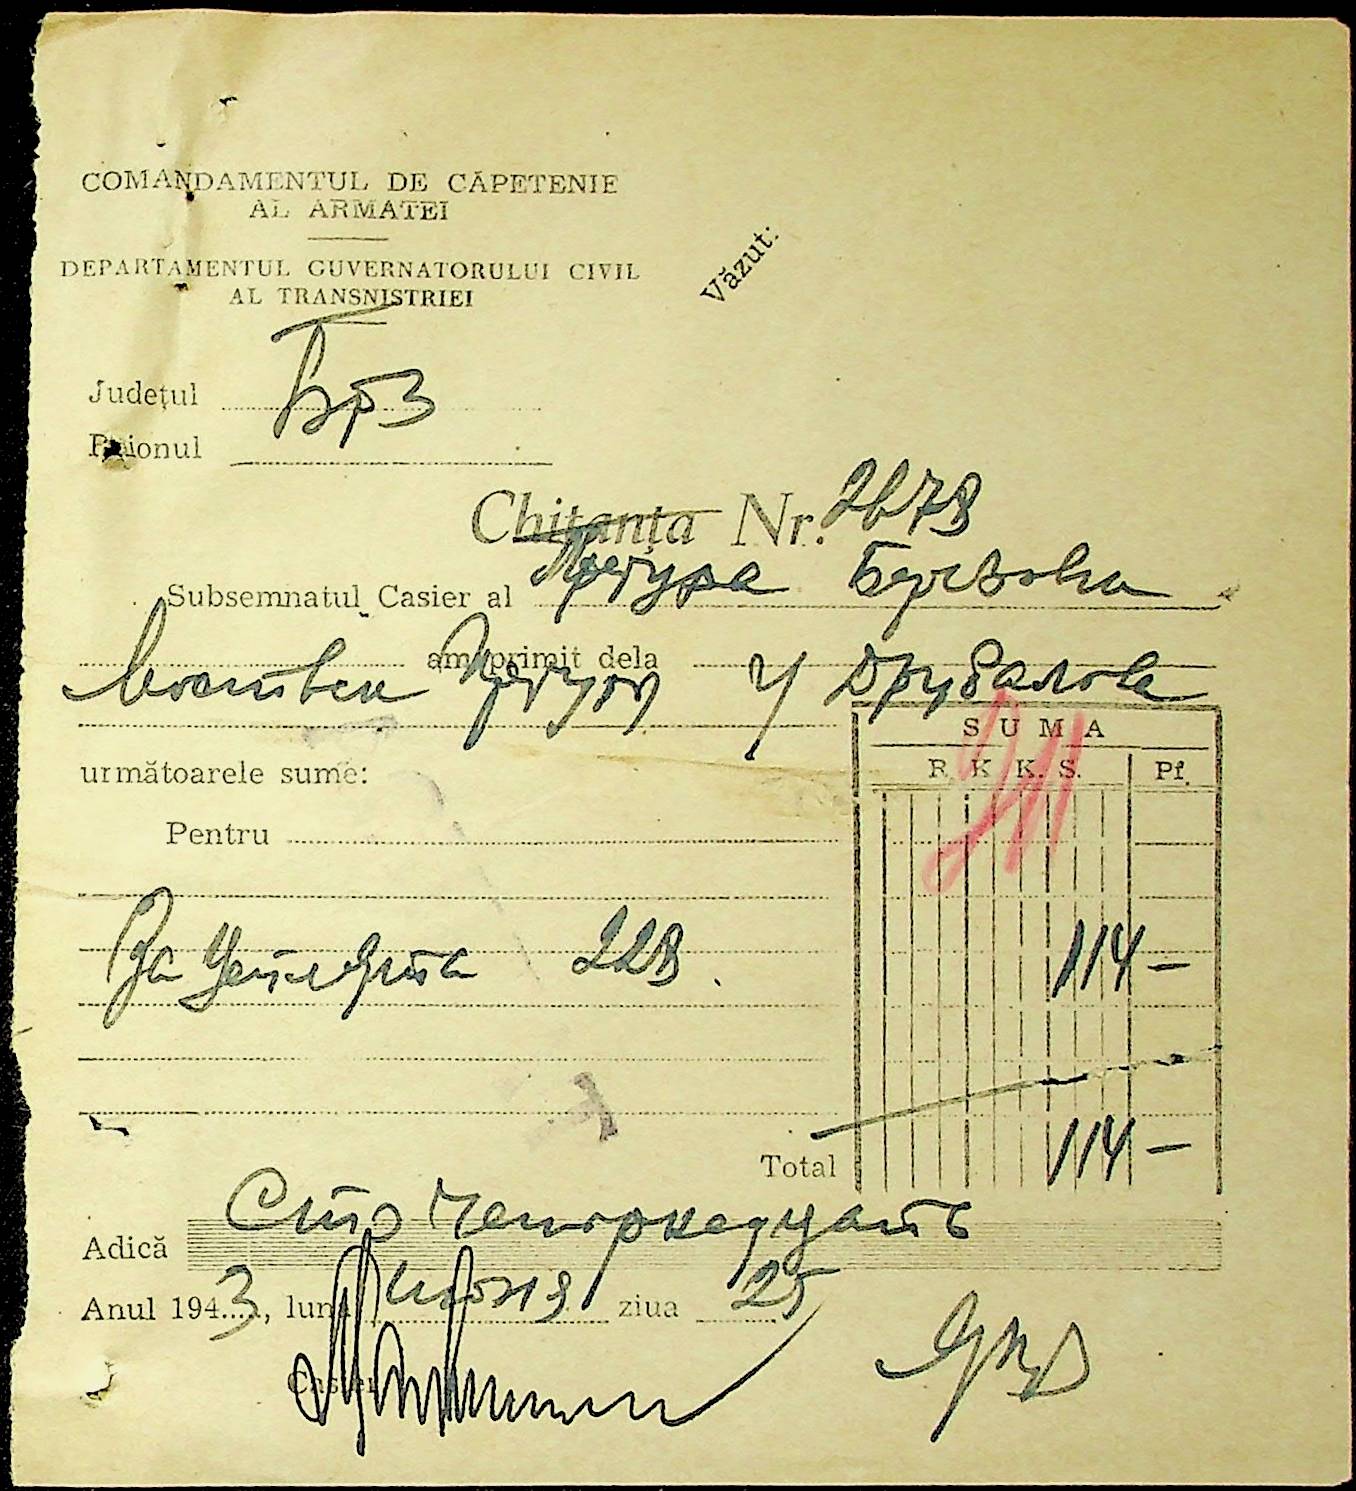 COMANDAMENTUL DE CĂPETENIE
AL ARMATEI
DEPARTAMENTUL GUVERNATORULUI CIVIL
AL TRANSNISTRIEI
Văzut:
Județul Брз
Raionul
Chitanța Nr. 2678
Subsemnatul Casier al Претура
am primit dela У
următoarele sume:
SUMA
R. K. K. S. Pf.
Pentru
За 228. 114 —
Total 114 —
Adică Сто Четырнадцать
Anul 1943, luna Июня ziua 25
Casier